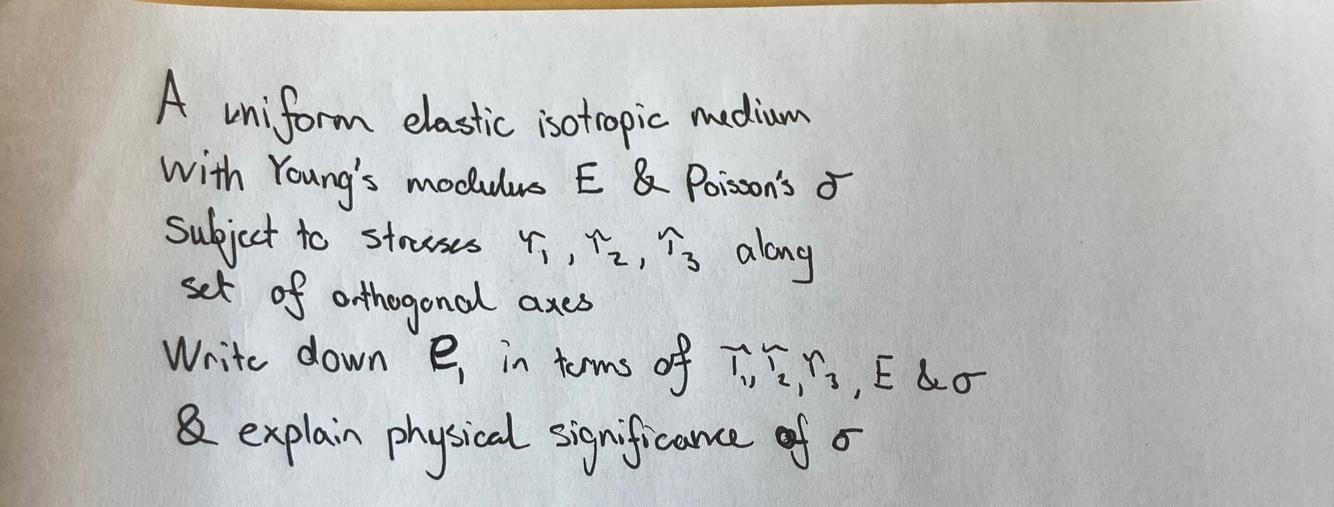 A uniform elastic isotropic medium
with Young's modulus E & Poisson's σ
subject to stresses τ₁, τ₂, τ₃ along
set of orthogonal axes
Write down e₁ in terms of τ₁, τ₂, τ₃, E & σ
& explain physical significance of σ